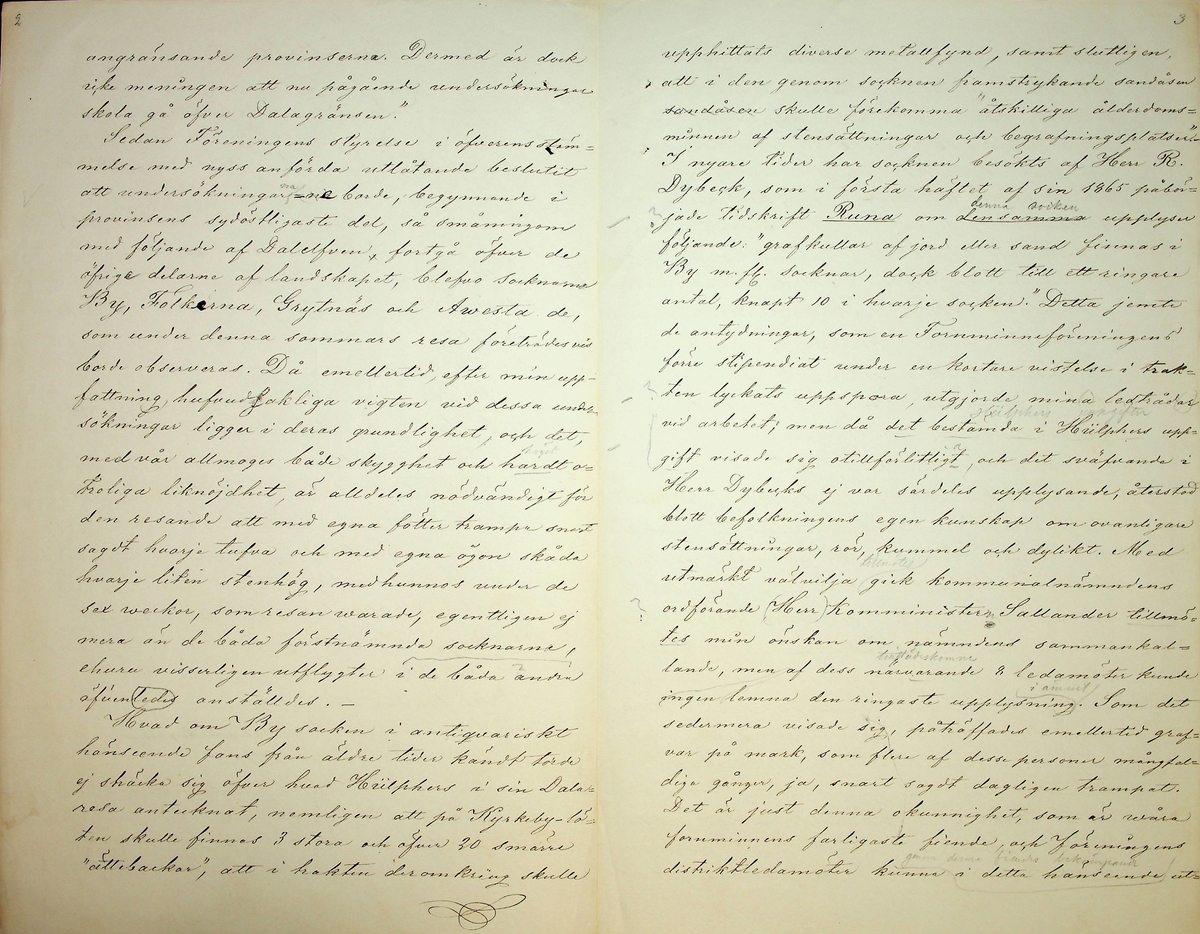 2
angränsande provinserna. Dermed är dock
icke meningen att nu pågående undersökningar
skola gå öfver Dalagränsen."
Sedan Föreningens styrelse i öfverensstäm-
melse med nyss anförda utlåtande beslutit
att undersökningarna borde, begynnande i
provinsens sydostligaste del, så småningom
med följande af Dalelfven, fortgå öfver de
öfrige delarne af landskapet, blefvo socknarne
By, Folkerna, Grytnäs och Avesta de,
som under denna sommars resa företrädesvis
borde observeras. Då emellertid, efter min upp-
fattning, hufvudsakliga vigten vid dessa under-
sökningar ligger i deras grundlighet, och det,
med vår allmoges både skygghet och hardt o-
troliga liknöjdhet, är alldeles nödvändigt för
den resande att med egna fötter trampa snart
sagdt hvarje tufva och med egna ögon skåda
hvarje liten stenhög, medhunnos under de
sex veckor, som resan warade, egentligen ej
mera än de båda förstnämnda socknarna,
ehuru visserligen utflygter i de båda andra
äfvenledes anställdes. —
Hvad om By socken i antiqvariskt
hänseende fans från äldre tider kändt torde
ej sträcka sig öfver hvad Hülphers i sin Dala-
resa antecknat, nemligen att på Kyrkeby-lö-
ten skulle finnas 3 stora och öfver 20 smärre
"ättebackar", att i trakten deromkring skulle
3
upphittats diverse metallfynd, samt slutligen,
att i den genom socknen framstrykande sandåsen
sandåsen skulle förekomma "åtskilliga ålderdoms-
minnen af stensättningar och begrafningsplatser."
I nyare tider har socknen besökts af Herr R.
Dybeck, som i första häftet af sin 1865 påbör-
denna socken
jade tidskrift Runa om densamma upplyser
följande: "grafkullar af jord eller sand finnas i
By m. fl. socknar, dock blott till ett ringare
antal, knapt 10 i hvarje socken." Detta jemte
de antydningar, som en Fornminneföreningens
förre stipendiat under en kortare vistelse i trak-
ten lyckats uppspåra, utgjorde mina ledtrådar
Hülphers uppgifter
vid arbetet; men då det bestämda i Hülphers upp-
gift visade sig otillförlitligt, och det sväfvande i
Herr Dybecks ej var särdeles upplysande, återstod
blott befolkningens egen kunskap om ovanligare
stensättningar, rör, kummel och dylikt. Med
tillmötes
utmärkt välvilja gick kommunalnämndens
ordförande (Herr) Komminister Sallander tillmö-
tes min önskan om nämndens sammankal-
tillstädeskomne
lande, men af dess närvarande 8 ledamöter kunde
i ämnet
ingen lemna den ringaste upplysning. Som det
sedermera visade sig, påträffades emellertid graf-
var på mark, som flere af desse personer mångfal-
diga gånger, ja, snart sagdt dagligen trampat.
Det är just denna okunnighet, som är wåra
fornminnens farligaste fiende, och föreningens
genom denne fiendes bekämpande
distriktledamöter kunna i detta hänseende ut-